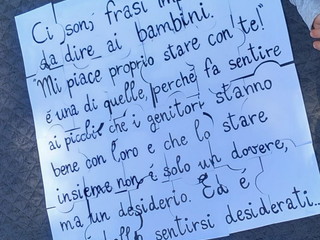 Ci son; frasi imp
da dire ai bambini.
"Mi piace proprio stare con te!"
é una di quelle, perchè fa sentire
ai piccoli che i genitori stanno
bene con loro e che lo stare
insieme non é solo un dovere,
ma un desiderio. Ed é
sentirsi desiderati...